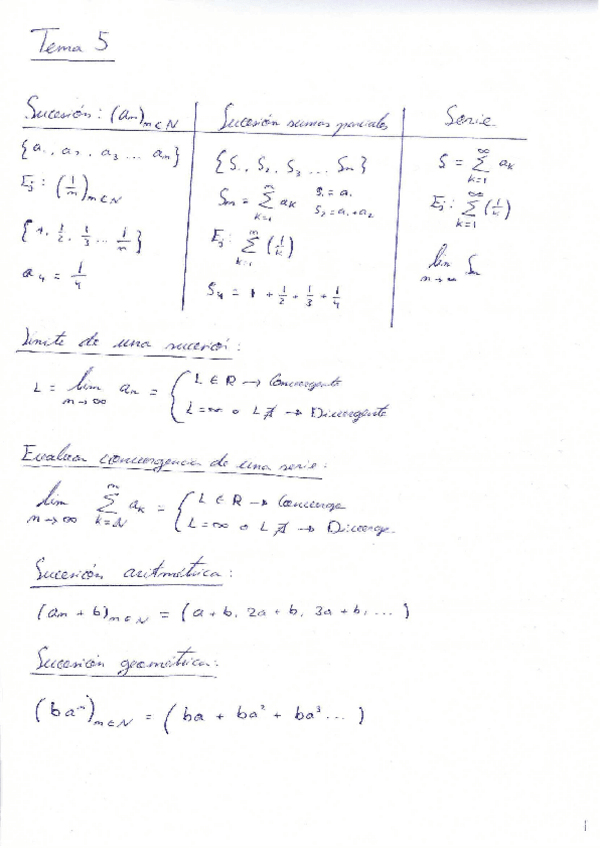 Tema 5
Sucesión: (an)n∈N | Sucesión sumas parciales | Serie
{a1, a2, a3 ... an} | {S1, S2, S3 ... Sn} | S = ∑_{k=1}^{∞} ak
Ej: (1/n)n∈N | Sn = ∑_{k=1}^{n} ak S1 = a1 S2 = a1 + a2 | Ej: ∑_{k=1}^{∞} (1/k)
{1, 1/2, 1/3 ... 1/n} | Ej: ∑_{k=1}^{n} (1/k) | lim_{n→∞} Sn
a4 = 1/4 | S4 = 1 + 1/2 + 1/3 + 1/4
Límite de una sucesión:
L = lim_{n→∞} an = { L ∈ R → Convergente
L = ∞ o L ∄ → Divergente
Evaluar convergencia de una serie:
lim_{n→∞} ∑_{k=N}^{n} ak = { L ∈ R → Converge
L = ∞ o L ∄ → Diverge
Sucesión aritmética:
(an + b)n∈N = (a + b, 2a + b, 3a + b, ...)
Sucesión geométrica:
(ba^n)n∈N = (ba + ba² + ba³ ...)
1